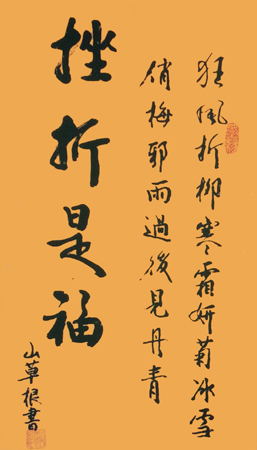 狂風折柳寒霜妍菊冰雪
俏梅邪雨過後見丹青
挫折是福
山草根書